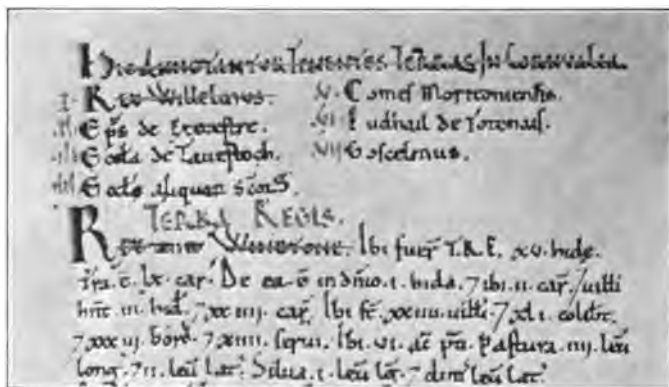 Hic Annotantur Tenentes Terras In Cornvalia.
I. Rex Willelmus.
II. Eps de Execestre.
III. Eccla de Tauestoch.
IIII. Eccle aliquor scoꝜ.
V. Comes Moritoniensis.
VI. Iudhail de Totenais.
VII Goscelmus.
TERRA REGIS.
Rex tenet Winetone. Ibi fuer T.R.E. xv. hidæ.
Tra. ē. lx. car. De ea ē in dn̄io. i. hida. ⁊ ibi. ii. car. ⁊ uilli
hn̄t. iii. hid. ⁊ xx iiii. car. Ibi sē. xxiiii. uilli. ⁊ xli. colibt.
⁊ xxx iii. bord. ⁊ xiiii. serui. Ibi. vi. ac p̄ti. Pastura. iiii. leu
long. ⁊ ii. leu lat. Silua. i. leu lg. ⁊ dim leu lat